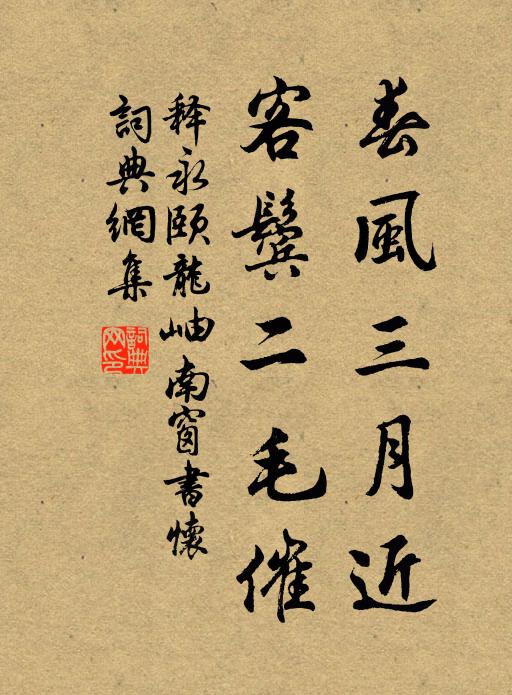 春風三月近
客鬢二毛催
释永頤龍岫南窗書懷
詞典網集
詞典网印